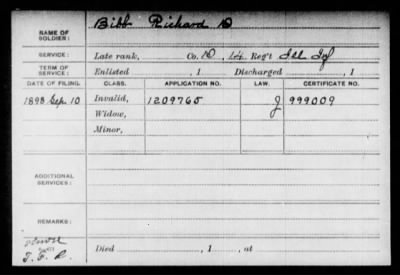 NAME OF SOLDIER: Bibb Richard D
SERVICE: Late rank, Co. D, 14 Reg't Ill Inf
TERM OF SERVICE: Enlisted , 1 Discharged , 1
DATE OF FILING. CLASS. APPLICATION NO. LAW. CERTIFICATE NO.
1898 Sep. 10 Invalid, 1209765 J 999009
Widow,
Minor,
ADDITIONAL SERVICES:
REMARKS:
Died , 1 , at